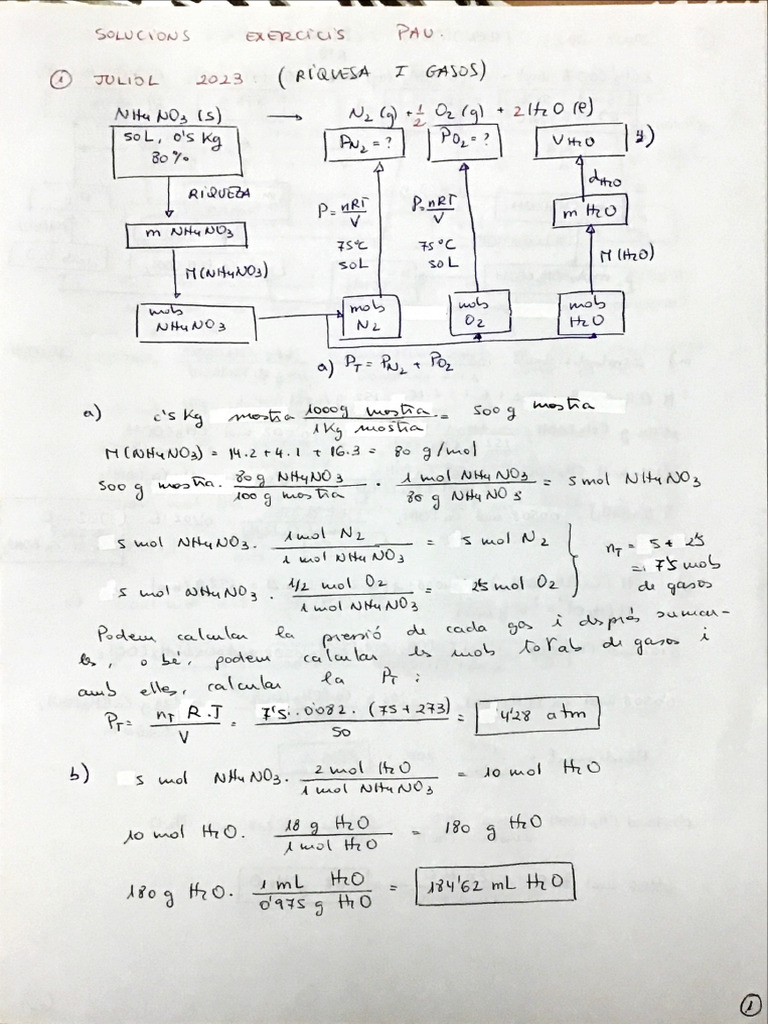 SOLUCIONS EXERCICIS PAU.
① JULIOL 2023 (RIQUESA I GASOS)
NH4NO3 (s) → N2 (g) + 1/2 O2 (g) + 2 H2O (l)
50L, 0'5 Kg
80%
PN2 = ?
PO2 = ?
VH2O
RIQUEZA
P = nRT/V
75°C
50L
P = nRT/V
75°C
50L
dH2O
m H2O
m NH4NO3
M(NH4NO3)
M(H2O)
mols NH4NO3
mols N2
mols O2
mols H2O
a) PT = PN2 + PO2
a) 0'5 Kg mostra 1000g mostra / 1Kg mostra = 500 g mostra
M(NH4NO3) = 14.2 + 4.1 + 16.3 = 80 g/mol
500 g mostra · 80g NH4NO3 / 100g mostra · 1 mol NH4NO3 / 80g NH4NO3 = 5 mol NH4NO3
5 mol NH4NO3 · 1 mol N2 / 1 mol NH4NO3 = 5 mol N2
5 mol NH4NO3 · 1/2 mol O2 / 1 mol NH4NO3 = 2'5 mol O2
nT = 5 + 2'5
= 7'5 mols
de gasos
Podem calcular la pressió de cada gas i després sumar-
les, o bé, podem calcular els mols totals de gasos i
amb elles, calcular la PT :
PT = nT R.T / V = 7'5 . 0'082 . (75 + 273) / 50 = 4'28 atm
b) 5 mol NH4NO3 · 2 mol H2O / 1 mol NH4NO3 = 10 mol H2O
10 mol H2O · 18 g H2O / 1 mol H2O = 180 g H2O
180 g H2O · 1 mL H2O / 0'975 g H2O = 184'62 mL H2O
1